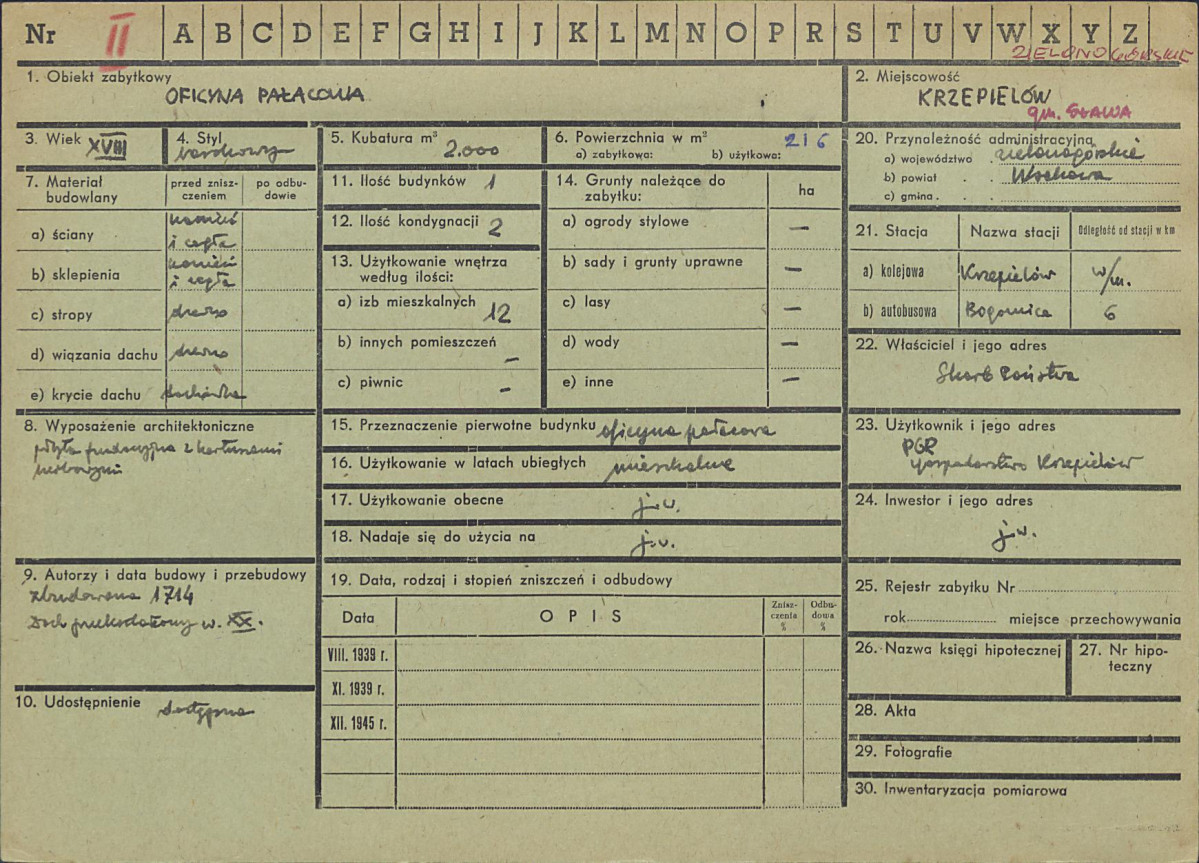 Nr II A B C D E F G H I J K L M N O P R S T U V W X Y Z
ZIELONOGÓRSKIE
1. Obiekt zabytkowy
OFICYNA PAŁACOWA
2. Miejscowość
KRZEPIELÓW
gm. SŁAWA
3. Wiek XVIII
4. Styl
barokowy
5. Kubatura m³ 2.000
6. Powierzchnia w m² 216
a) zabytkowa: b) użytkowa:
20. Przynoleżność administracyjna
a) województwo . zielonogórskie
b) powiat . . Wschowa
c) gmina . . .
7. Materiał budowlany
przed znisz-
czeniem
po odbu-
dowie
a) ściany
kamień
i cegła
b) sklepienia
kamień
i cegła
c) stropy drewno
d) wiązania dachu drewno
e) krycie dachu dachówka
8. Wyposażenie architektoniczne
płyta fundacyjna z kartuszami
herbowymi
9. Autorzy i data budowy i przebudowy
zbudowana 1714
Dach przekształcony w. XX.
10. Udostępnienie dostępna
11. Ilość budynków 1
12. Ilość kondygnacji 2
13. Użytkowanie wnętrza
według ilości:
a) izb mieszkalnych 12
b) innych pomieszczeń –
c) piwnic –
14. Grunty należące do
zabytku:
ha
a) ogrody stylowe –
b) sady i grunty uprawne –
c) lasy –
d) wody –
e) inne –
15. Przeznaczenie pierwotne budynku oficyna pałacowa
16. Użytkowanie w latach ubiegłych mieszkalne
17. Użytkowanie obecne j.w.
18. Nadaje się do użycia na j.w.
19. Data, rodzaj i stopień zniszczeń i odbudowy
Data
OPIS
Znisz-
czenia
%
Odbu-
dowa
%
VIII. 1939 r.
XI. 1939 r.
XII. 1945 r.
21. Stacja
Nazwa stacji
Odległość od stacji w km
a) kolejowa Krzepielów w/m.
b) autobusowa 6
22. Właściciel i jego adres
Skarb Państwa
23. Użytkownik i jego adres
PGR
Gospodarstwo Krzepielów
24. Inwestor i jego adres
j.w.
25. Rejestr zabytku Nr
rok miejsce przechowywania
26. Nazwa księgi hipotecznej
27. Nr hipo-
teczny
28. Akta
29. Fotografie
30. Inwentaryzacja pomiarowa